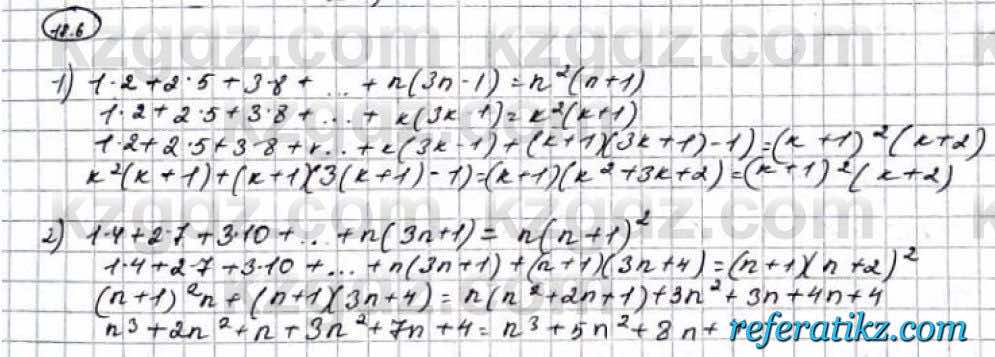 18.6
1) 1·2+2·5+3·8+ ... + n(3n-1)=n²(n+1)
1·2+2·5+3·8+...+к(3к-1)=к²(к+1)
1·2+2·5+3·8+...+к(3к-1)+(к+1)(3(к+1)-1)=(к+1)²(к+2)
к²(к+1)+(к+1)(3(к+1)-1)=(к+1)(к²+3к+2)=(к+1)²(к+2)
2) 1·4+2·7+3·10+...+n(3n+1)= n(n+1)²
1·4+2·7+3·10+...+n(3n+1)+(n+1)(3n+4)=(n+1)(n+2)²
(n+1)²n+(n+1)(3n+4)=n(n²+2n+1)+3n²+3n+4n+4
n³+2n²+n+3n²+7n+4=n³+5n²+8n+
referatikz.com